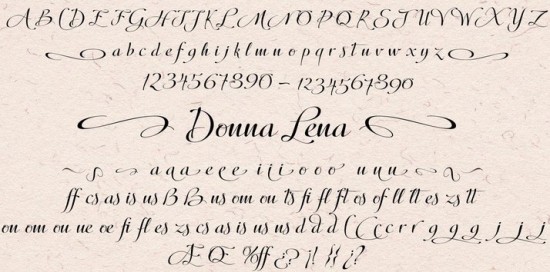 A B C D E F G H I J K L M N O P Q R S T U V W X Y Z
a b c d e f g h i j k l m n o p q r s t u v w x y z
1234567890 – 1234567890
Donna Lena
a a a e e e i i i o o o u u u
ff cs as is us B B us om ou ts fi fl ft os of ll tt es zs tt
ou om ou ue oe fi fl es zs cs as is us us d d d ( C c c r r g g g j j j
Æ Œ %